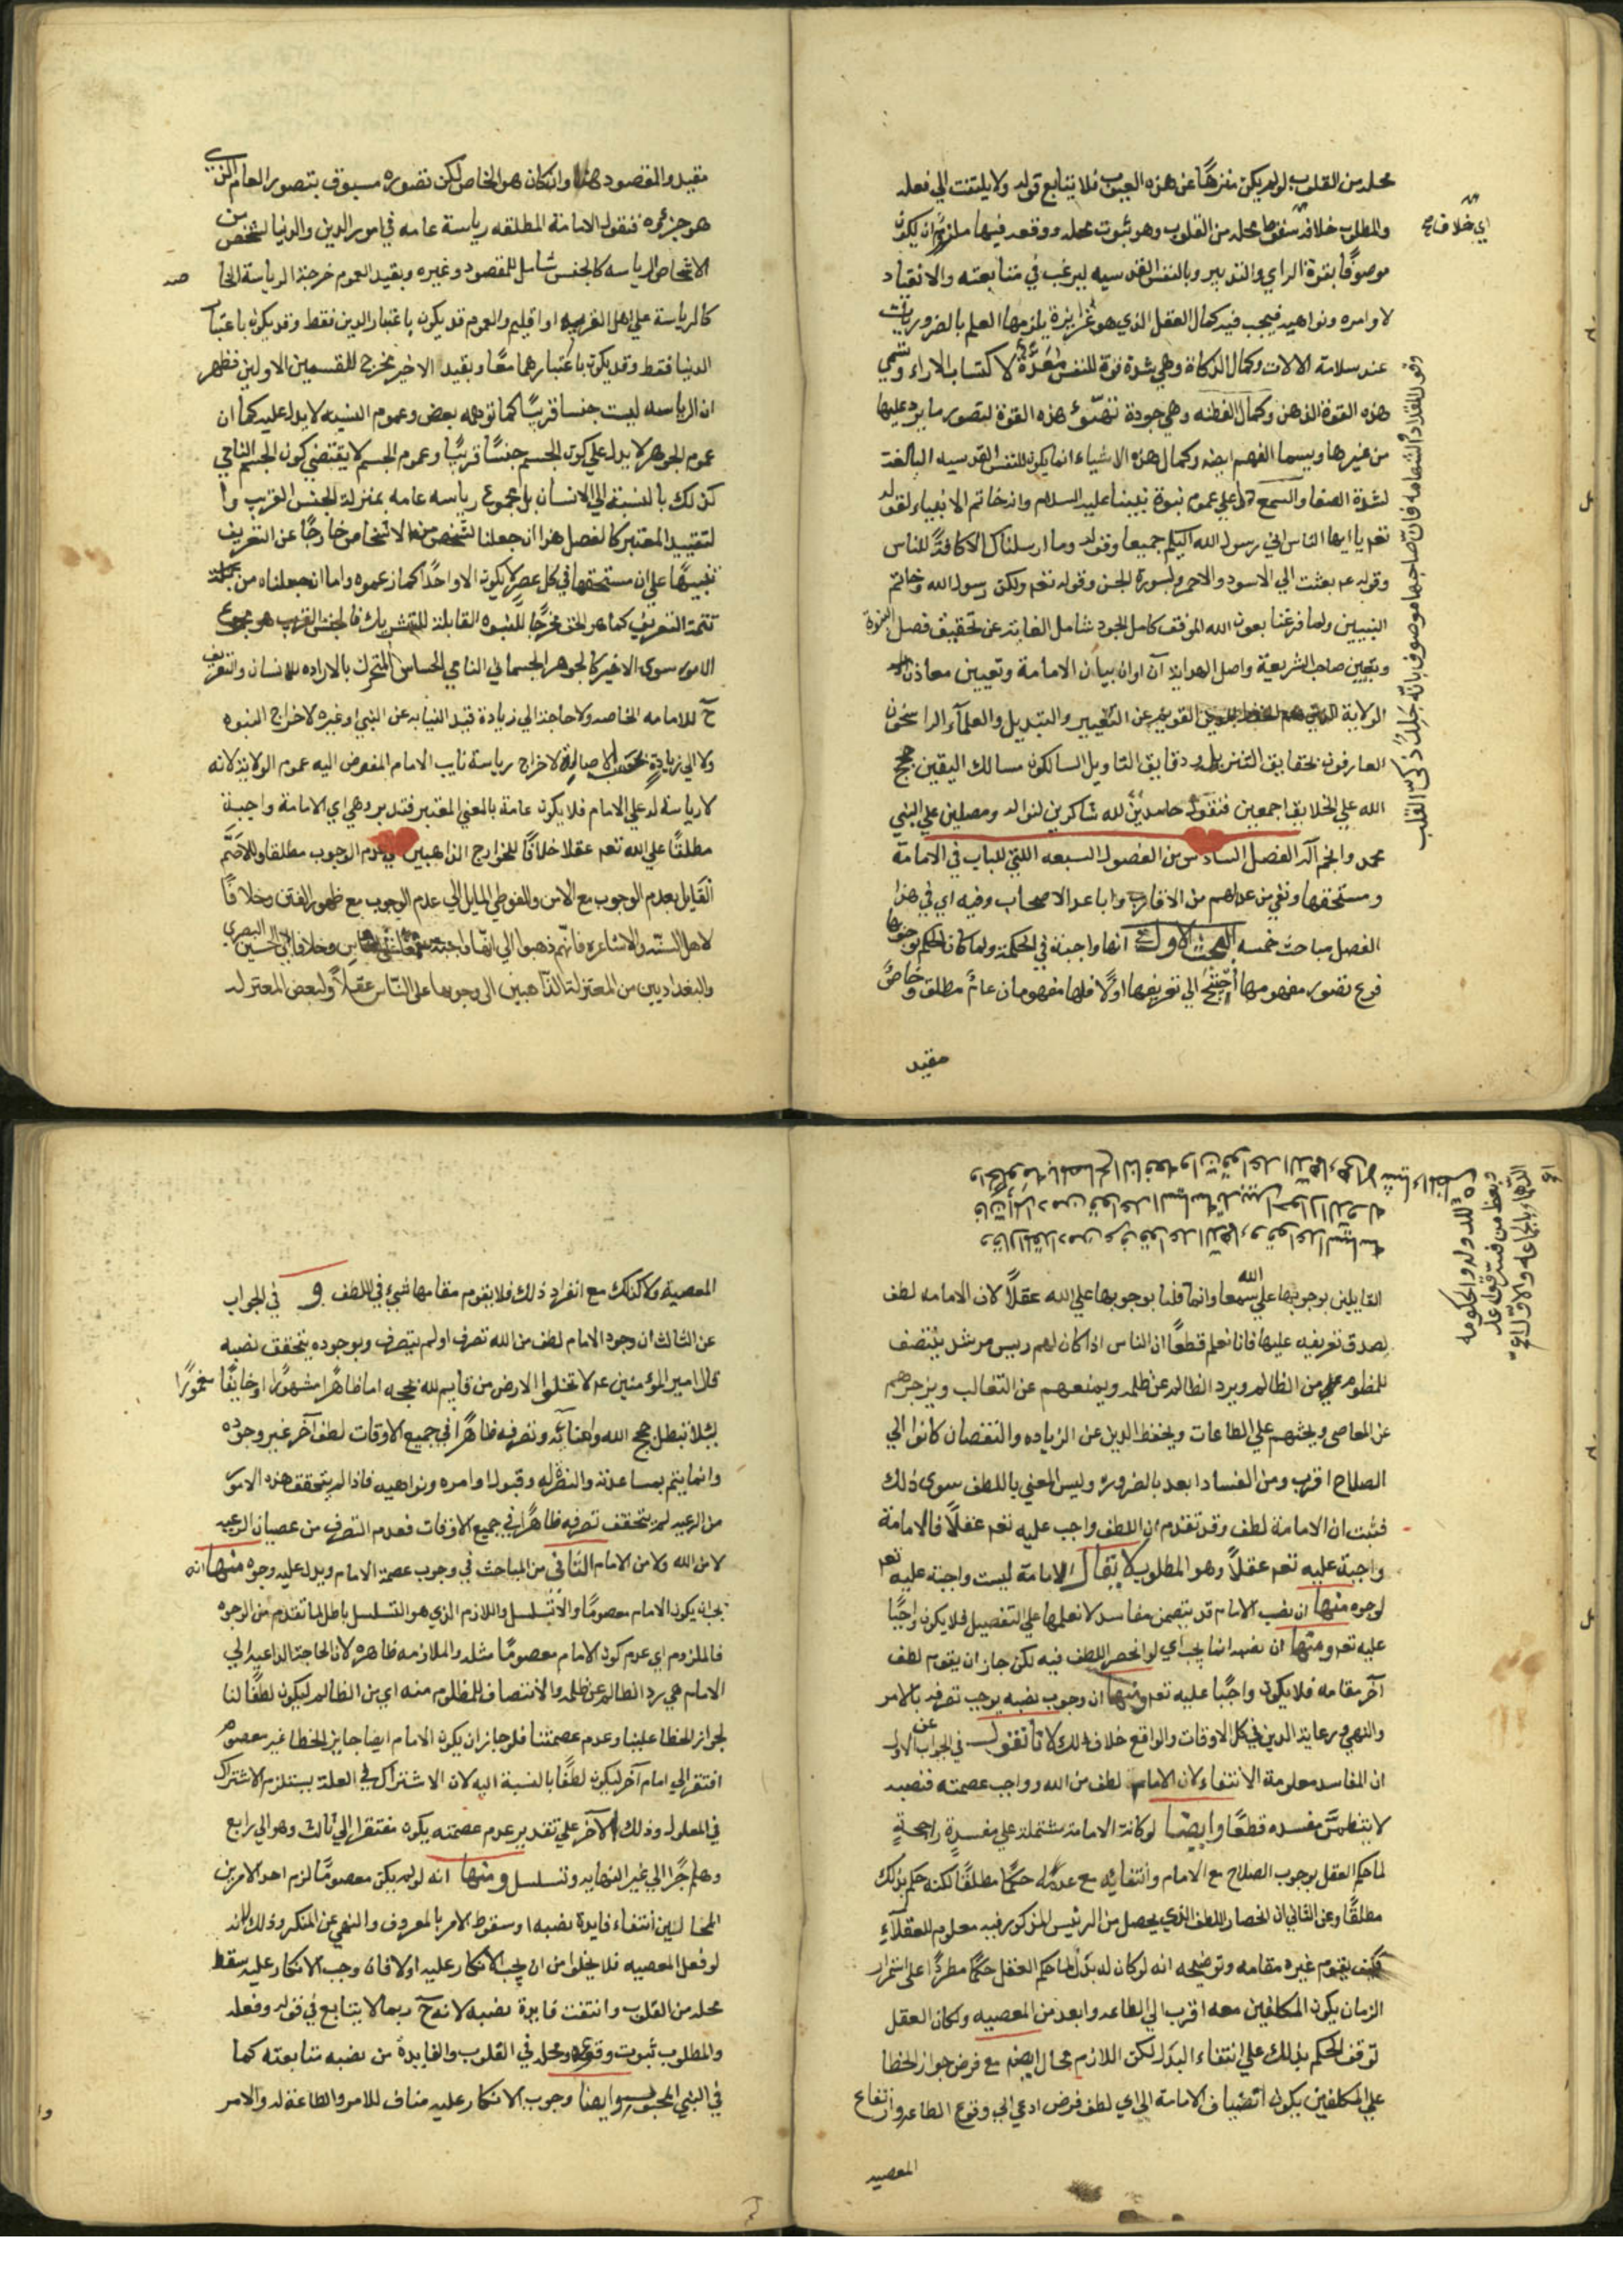 محله من القلوب لو لم يكن منزها عن هذه العيوب فلا يتابع قوله ولا يلتفت الي فعله
والمطلوب خلافه سقوط محله من القلوب وهو ثبوت محله ووقعه فيها ملزوم ان يكون
موصوفا بقوة الراي والتدبير وبالنفس القدسيه ليرغب في متابعته والانقياد
لاوامره ونواهيه فيجب فيه كمال العقل الذي هو غرايزة يلزمها العلم بالضروريات
عند سلامة الالات وكمال الذكاة وهي شدة قوة للنفس معدة لاكتساب الاراء وتسمي
هذه القوة الذهن وكمال الفطنه وهي جودة تهيّؤ هذه القوة لتصور ما يرد عليها
من غيرها ويسما الفهم ايضه وكمال هذه الاشياء انما يكون للنفس القدسيه البالغة
لشدة الصفا والسمع دل علي عموم نبوة نبينا عليه السلام وانه خاتم الانبياء لقوله
تعم يا ايها الناس اني رسول الله اليكم جميعا وقوله وما ارسلناك الا كافة للناس
وقوله عم بعثت الي الاسود والاحمر ولسورة الجن وقوله تعم ولكن رسول الله وخاتم
النبيين ولما فرغنا بعون الله الموفق كامل الجود شامل الغاية عن تحقيق فصل النبوة
وتعيين صاحب الشريعة واصل الهداية آن اوان بيان الامامة وتعيين معادن
الولاية القويم عن التغيير والتبديل والعلمآء الراسخون
العارفون بحقايق التنزيل ودقايق التاويل السالكون مسالك اليقين حجج
الله علي الخلايق اجمعين فنقول حامدين لله شاكرين لنواله ومصلين علي النبي
محمد وانجم آله الفصل السادس من الفصول السبعه اللتي للباب في الامامة
ومستحقها ونفي من عداهم من الاقارب واباعد الاصحاب وفيه اي في هذا
الفصل مباحث خمسه البحث الاول في انها واجبة في الحكمة ولما كان الحكم بوجوبها
فرع تصور مفهومها احتيج الي تعريفها اولا فلها مفهومان عام مطلق وخاص
مقيد
اي خلافه
وفي للقلاد والشهامه فان صاحبها موصوف بانه جلد ذكي القلب
مقيد والمقصود هنا وان كان هو الخاص لكن تصوره مسبوق بتصور العام الذي
هو جزءه فنقول الامامة المطلقه رياسة عامه في امور الدين والدنيا لشخص من
الاشخاص الرياسه كالجنس شامل للمقصود وغيره وبقيد العموم خرجت الرياسة الخا
صه
كالرياسة علي اهل القريه او اقليم والعموم قد يكون باعتبار الدين فقط وقد يكون باعتبار
الدنيا فقط وقد يكون باعتبارهما معا وبقيد الاخير مخرج للقسمين الاولين فظهر
ان الرياسه ليست جنسا قريبا كما توهمه بعض وعموم النسبه لا يدل عليه كما ان
عموم الجوهر لا يدل علي كون الجسم جنسا قريبا وعموم الجسم لا يقتضي كون الجسم النامي
كذلك بالنسبة الي الانسان بل مجموع رياسه عامه بمنزلة الجنس القريب وا
لتقييد المعتبر كالفصل هذا ان جعلنا لشخص من الاشخاص خارجا عن التعريف
تنبيها علي ان مستحقها في كل عصر لا يكون الا واحدا كما زعموه واما ان جعلناه من
تتمة التعريف كما هو الحق مخرجا للنبوه القابلة للتشريك فالجنس القريب هو مجموع
الامور سوي الاخير كالجوهر الجسماني النامي الحساس المتحرك بالاراده للانسان والتعريف
ح للامامه الخاصه ولا حاجة الي زيادة قيد النيابه عن النبي او غيره لاخراج النبوه
ولا الي زيادة بحق الاصالة لاخراج رياسة نايب الامام المفوض اليه عموم الولاية لانه
لا رياسة له علي الامام فلا يكون عامة بالمعني المعتبر فتدبر وهي اي الامامة واجبة
مطلقا علي الله تعم عقلا خلافا للخوارج الذاهبين الي عدم الوجوب مطلقا وللاصم
القايل بعدم الوجوب مع الامن وللفوطي المايل الي عدم الوجوب مع ظهور الفتن وخلافا
لاهل السنه والاشاعره فانهم ذهبوا الي انها واجبة سمعا علي الناس وخلافا لابي الحسين البصري
والبغداديين من المعتزلة الذاهبين الي وجوبها علي الناس عقلا ولبعض المعتزله
القايلين بوجوبها علي الله سمعا وانما قلنا بوجوبها علي الله عقلا لان الامامه لطف
لصدق تعريفه عليها فانا نعلم قطعا ان الناس اذا كان لهم ريس مرشد ينتصف
للمظلوم من الظالم ويرد الظالم عن ظلمه ويمنعهم عن التغالب ويزجرهم
عن المعاصي ويحثهم علي الطاعات ويحفظ الدين عن الزياده والنقصان كانوا الي
الصلاح اقرب ومن الفساد ابعد بالضروره وليس المعني باللطف سوي ذلك
فثبت ان الامامة لطف وقد تقدم ان اللطف واجب عليه تعم عقلا فالامامة
واجبة عليه تعم عقلا وهو المطلوب لا يقال الامامة ليست واجبة عليه تعم
لوجوه منها ان نصب الامام قد يتضمن مفاسد لا نعلمها علي التفصيل فلا يكون واجبا
عليه تعم ومنها ان نصبه انما يجب اي لو انحصر اللطف فيه لكن جاز ان يقوم لطف
آخر مقامه فلا يكون واجبا عليه تعم ومنها ان وجوب نصبه يوجب تصرفه بالامر
والنهي ورعاية الدين في كل الاوقات والواقع خلاف ذلك لانا نقول في الجواب عن الاول
ان المفاسد معلومة الانتفاء لان الامام لطف من الله وواجب عصمته فنصبه
لا يتضمن مفسده قطعا وايضا لو كانت الامامة مشتملة علي مفسدة راجحة
لما حكم العقل بوجوب الصلاح مع الامام وانتفايه مع عدمه حكما مطلقا لكنه حكم بذلك
مطلقا وعن الثاني ان انحصار اللطف الذي يحصل من الرئيس المذكور فيه معلوم للعقلآء
فكيف يقوم غيره مقامه وتوضيحه انه لو كان له بدل لما حكم العقل حكما مطردا علي استمرار
الزمان بكون المكلفين معه اقرب الي الطاعه وابعد من المعصيه ولكان العقل
توقف الحكم بذلك علي انتفاء البدل لكن اللازم محال ايضه مع فرض جواز الخطا
علي المكلفين يكون انضياف الامامة الي اي لطف فرض ادعي الي وقوع الطاعه وارتفاع
المعصيه
المعصية ولا كذلك مع انفراد ذلك فلا يقوم مقامها شيء في اللطف و في الجواب
عن الثالث ان وجود الامام لطف من الله تصرف او لم يتصرف وبوجوده يتحقق نصبه
قال امير المؤمنين عم لا تخلوا الارض من قايم لله بحجه اما ظاهرا مشهورا او خايفا مغمورا
لئلا تبطل حجج الله وبيناته وتصرفه ظاهرا في جميع الاوقات لطف آخر غير وجوده
وانما يتم بمساعدته والنصرة له وقبول اوامره ونواهيه فاذا لم يتحقق هذه الامور
من الرعيه لم يتحقق تصرفه ظاهرا في جميع الاوقات فعدم التصرف من عصيان الرعيه
لا من الله ولا من الامام الثاني من المباحث في وجوب عصمة الامام ويدل عليه وجوه منها انه
يجب ان يكون الامام معصوما والا لتسلسل واللازم الذي هو التسلسل باطل لما تقدم من الوجوه
فالملزوم اي عدم كون الامام معصوما مثله والملازمه ظاهره لان الحاجة الداعيه الي
الامام هي رد الظالم عن ظلمه والانتصاف للمظلوم منه اي من الظالم ليكون لطفا لنا
لجواز الخطا علينا وعدم عصمتنا فلو جاز ان يكون الامام ايضا جايز الخطا غير معصوم
افتقر الي امام آخر ليكون لطفا بالنسبة اليه لان الاشتراك في العلة يستلزم الاشتراك
في المعلول وذلك الآخر علي تقدير عدم عصمته يكون مفتقرا الي ثالث وهو الي رابع
وهلم جرا الي غير النهايه وتسلسل ومنها انه لو لم يكن معصوما لزم احد الامرين
المحالين انتفاء فايدة نصبه او سقوط الامر بالمعروف والنهي عن المنكر وذلك لانه
لو فعل المعصيه فلا يخلوا من ان يجب الانكار عليه او لا فان وجب الانكار عليه سقط
محله من القلوب وانتفت فايدة نصبه لانه ح ربما لا يتابع في قوله وفعله
والمطلوب ثبوت وقوعه ومحله في القلوب والفايدة من نصبه متابعته كما
في النبي وايضا وجوب الانكار عليه مناف للامر والطاعة له والامر
وا